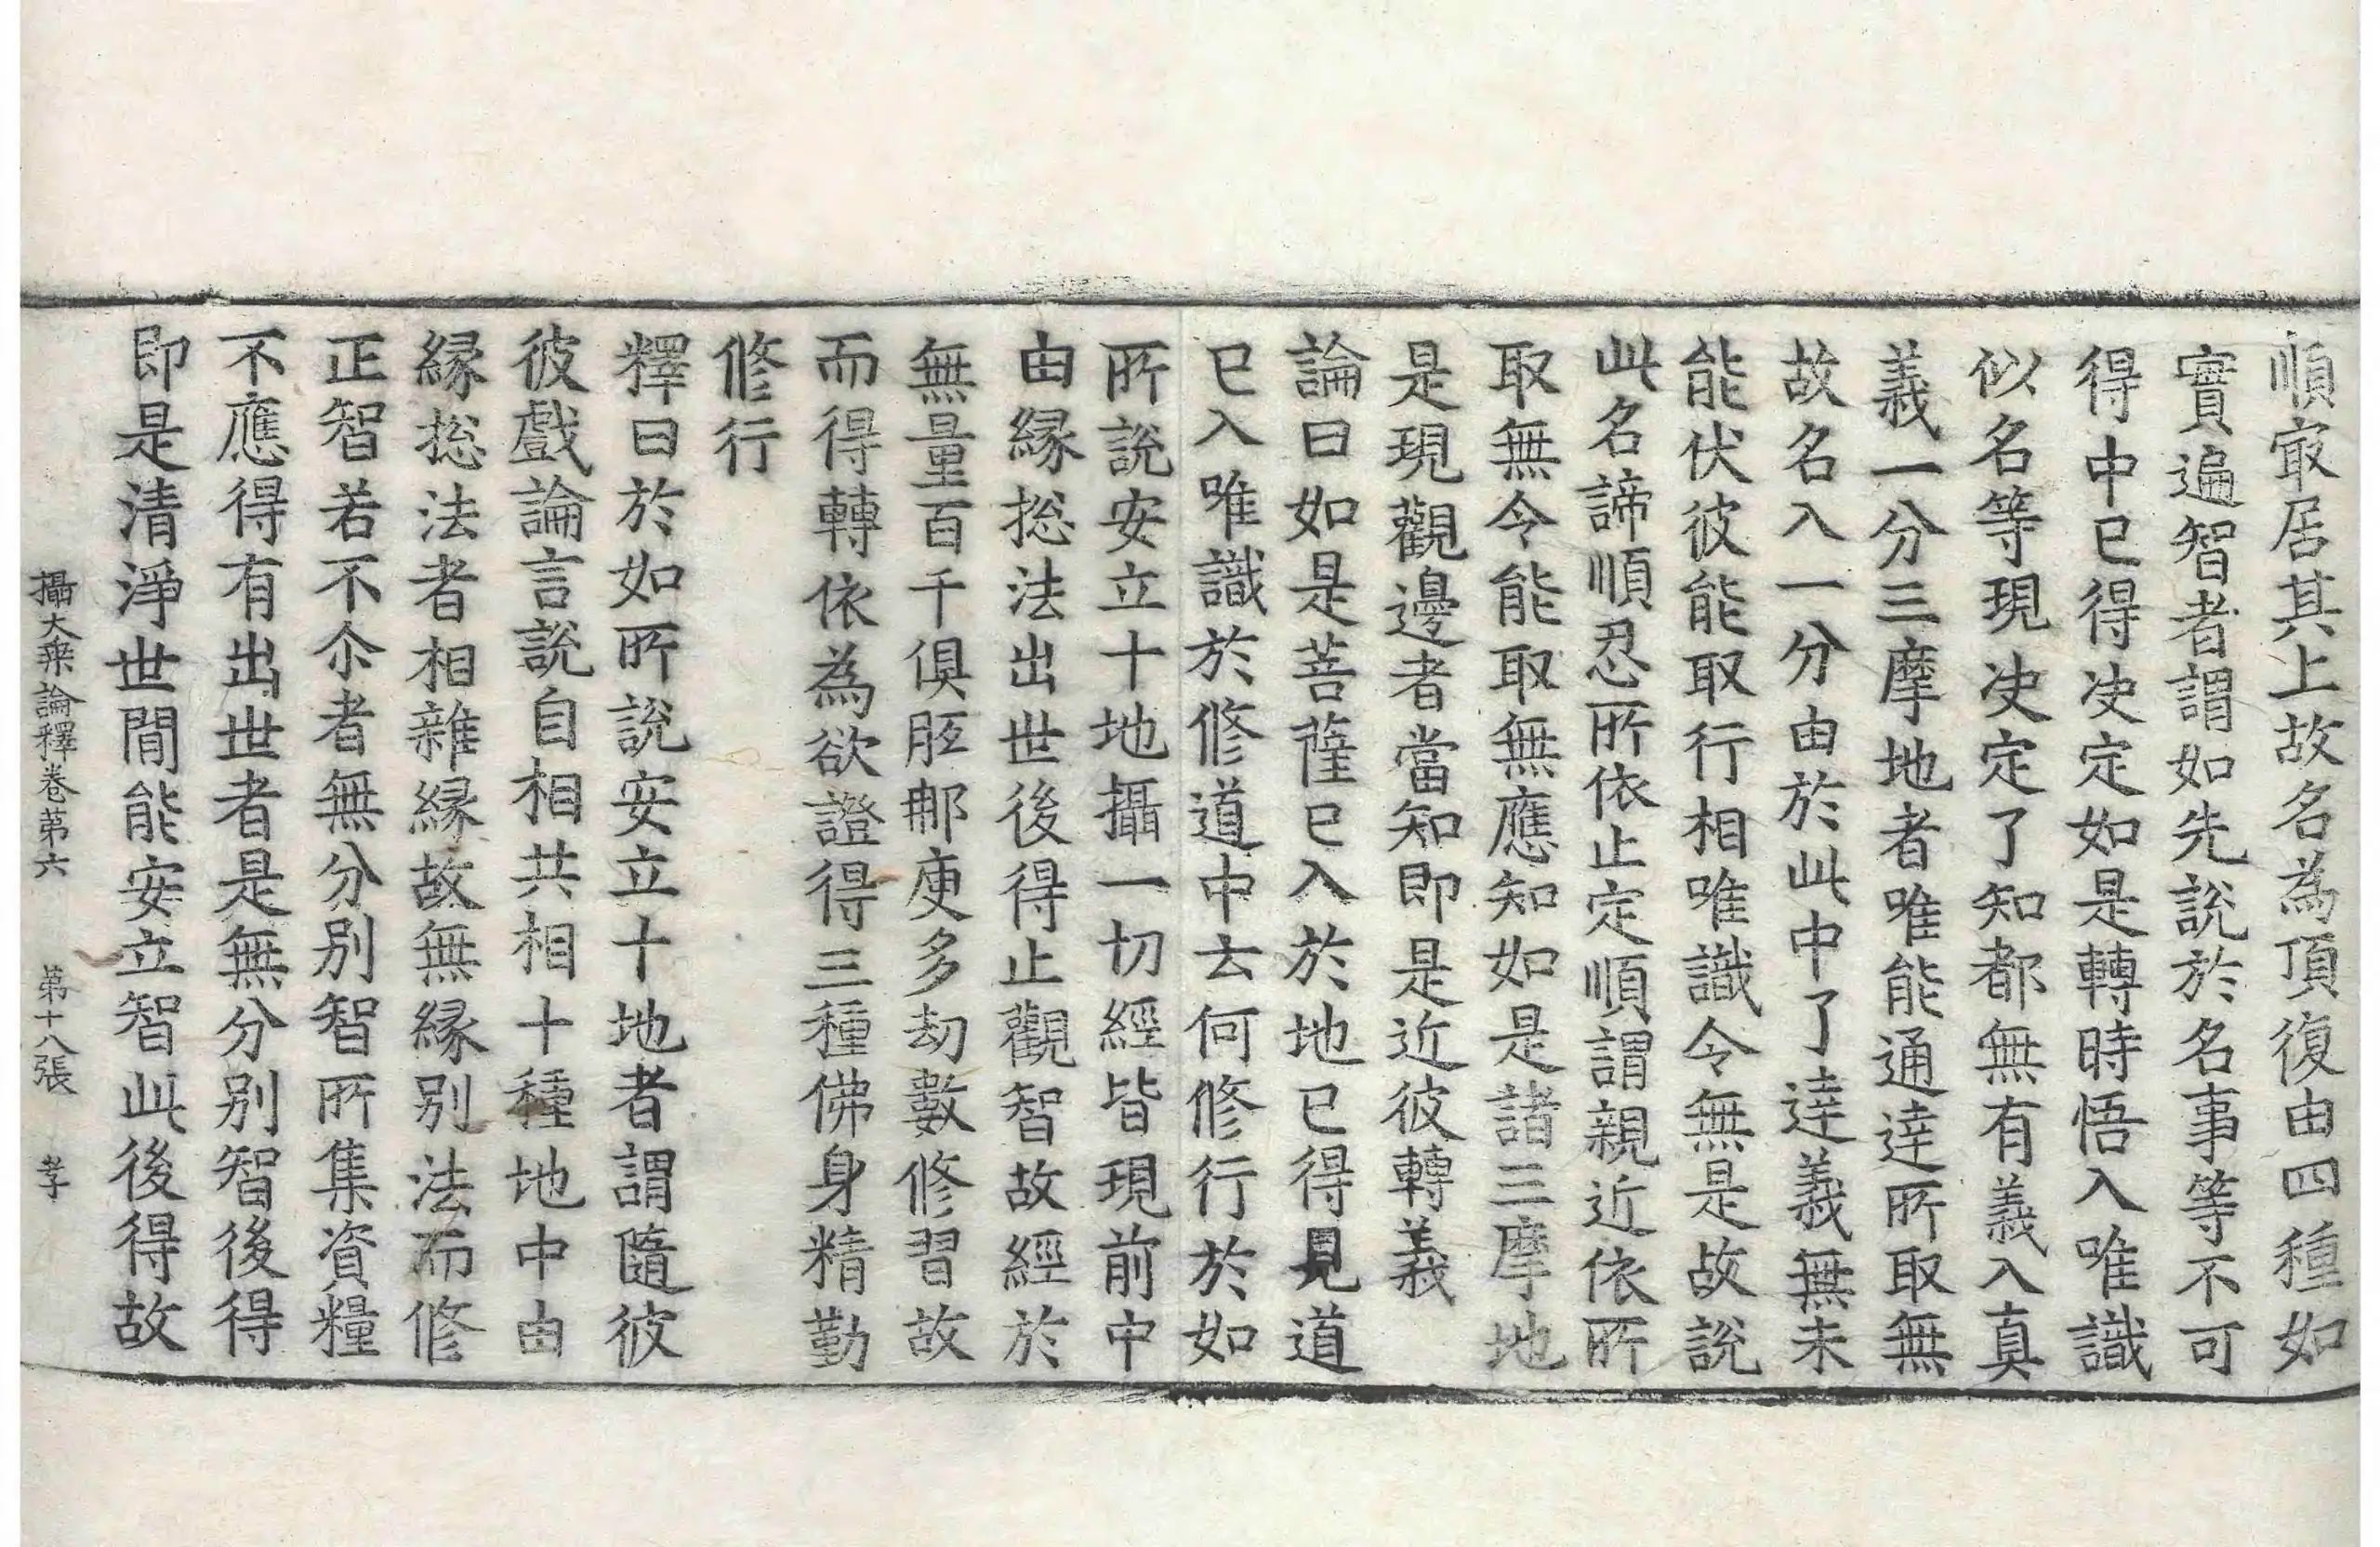 順㝡居其上故名為頂復由四種如
實遍智者謂如先說於名事等不可
得中已得决定如是轉時悟入唯識
似名等現决定了知都無有義入真
義一分三摩地者唯能通逹所取無
故名入一分由於此中了逹義無未
能伏彼能取行相唯識令無是故說
此名諦順忍所依止定順謂親近依所
取無令能取無應知如是諸三摩地
是現觀邊者當知即是近彼轉義
論曰如是菩薩已入於地已得見道
已入唯識於修道中云何修行於如
所說安立十地攝一切經皆現前中
由縁揔法出世後得止觀智故經於
無量百千俱胝那庾多劫數修習故
而得轉依為欲證得三種佛身精勤
修行
釋曰於如所說安立十地者謂隨彼
彼戲論言說自相共相十種地中由
縁揔法者相雜縁故無縁別法而修
正智若不尒者無分別智所集資糧
不應得有出世者是無分別智後得
即是清淨世間能安立智此後得故
攝大乗論釋卷第六 第十八張 孝